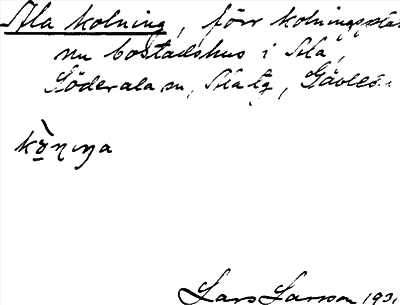 Ala kolning, förr kolningsplat
nu bostadshus i Ala,
Söderala sn, Ala tg, Gävleb.
Lars Larsson 193